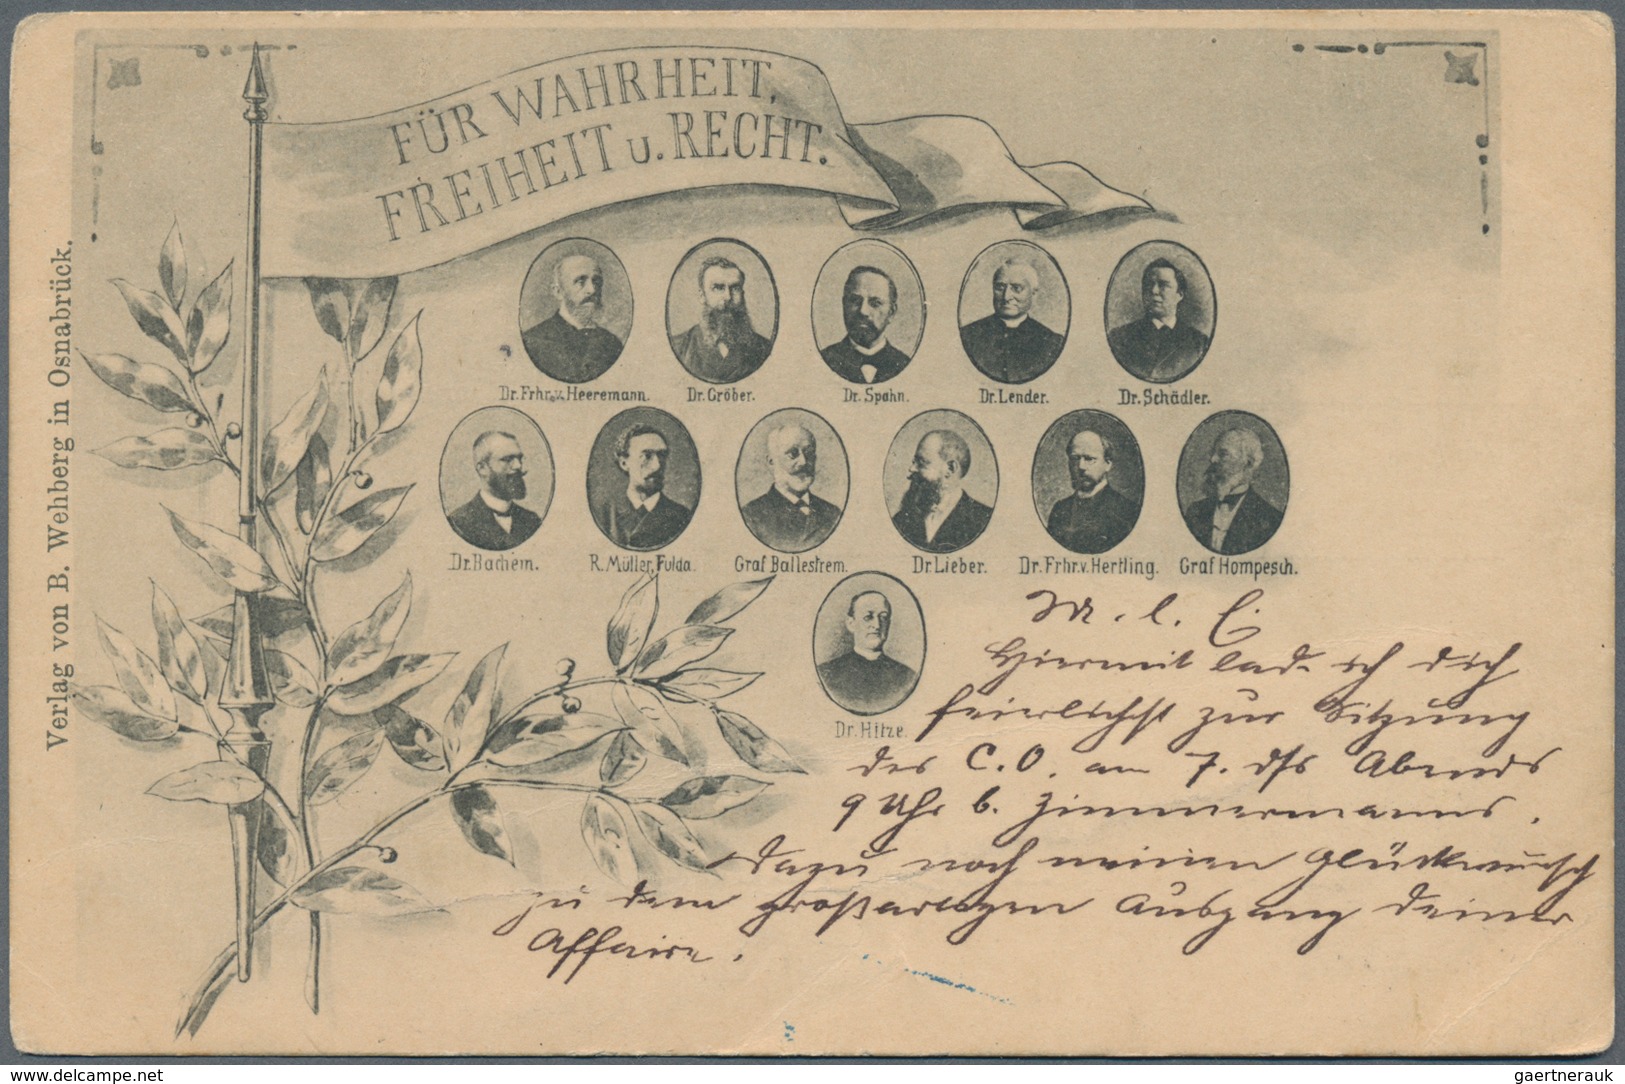 FÜR WAHRHEIT,
FREIHEIT U. RECHT.
Verlag von B. Wehberg in Osnabrück.
Dr. Frhr. v. Heeremann. Dr. Gröber. Dr. Spahn. Dr. Lender. Dr. Schädler.
Dr. Bachem. R. Müller, Fulda. Graf Ballestrem. Dr. Lieber. Dr. Frhr. v. Hertling. Graf Hompesch.
Dr. Hitze.
M. l. C.
Hiermit lade ich dich
feierlichst zur Sitzung
des C.O. am 7. dss Abends
9 Uhr b. Zimmermanns.
Dazu noch meinen Glückwunsch
zu dem großartigen Ausgang deiner
Affaire.
www.delcampe.net
gaertnerauk